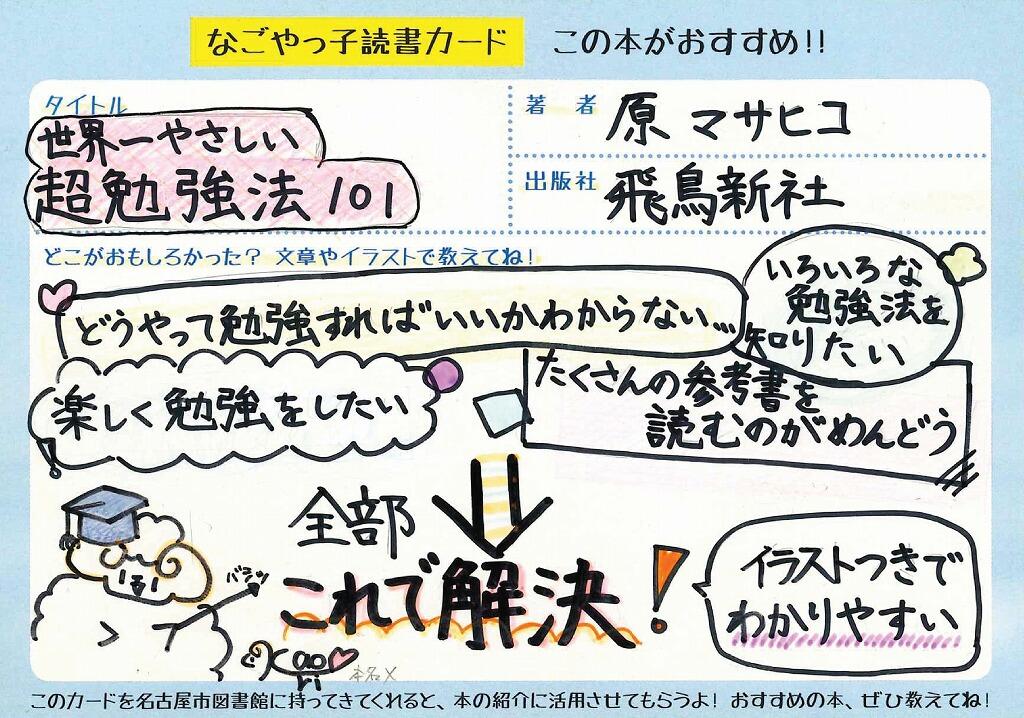 なごやっ子読書カード この本がおすすめ!!
タイトル
世界一やさしい
超勉強法101
著者 原 マサヒコ
出版社 飛鳥新社
どこがおもしろかった? 文章やイラストで教えてね!
どうやって勉強すればいいかわからない…
いろいろな
勉強法を
知りたい
楽しく勉強をしたい
たくさんの参考書を
読むのがめんどう
全部
これで解決!
イラストつきで
わかりやすい
このカードを名古屋市図書館に持ってきてくれると、本の紹介に活用させてもらうよ! おすすめの本、ぜひ教えてね!